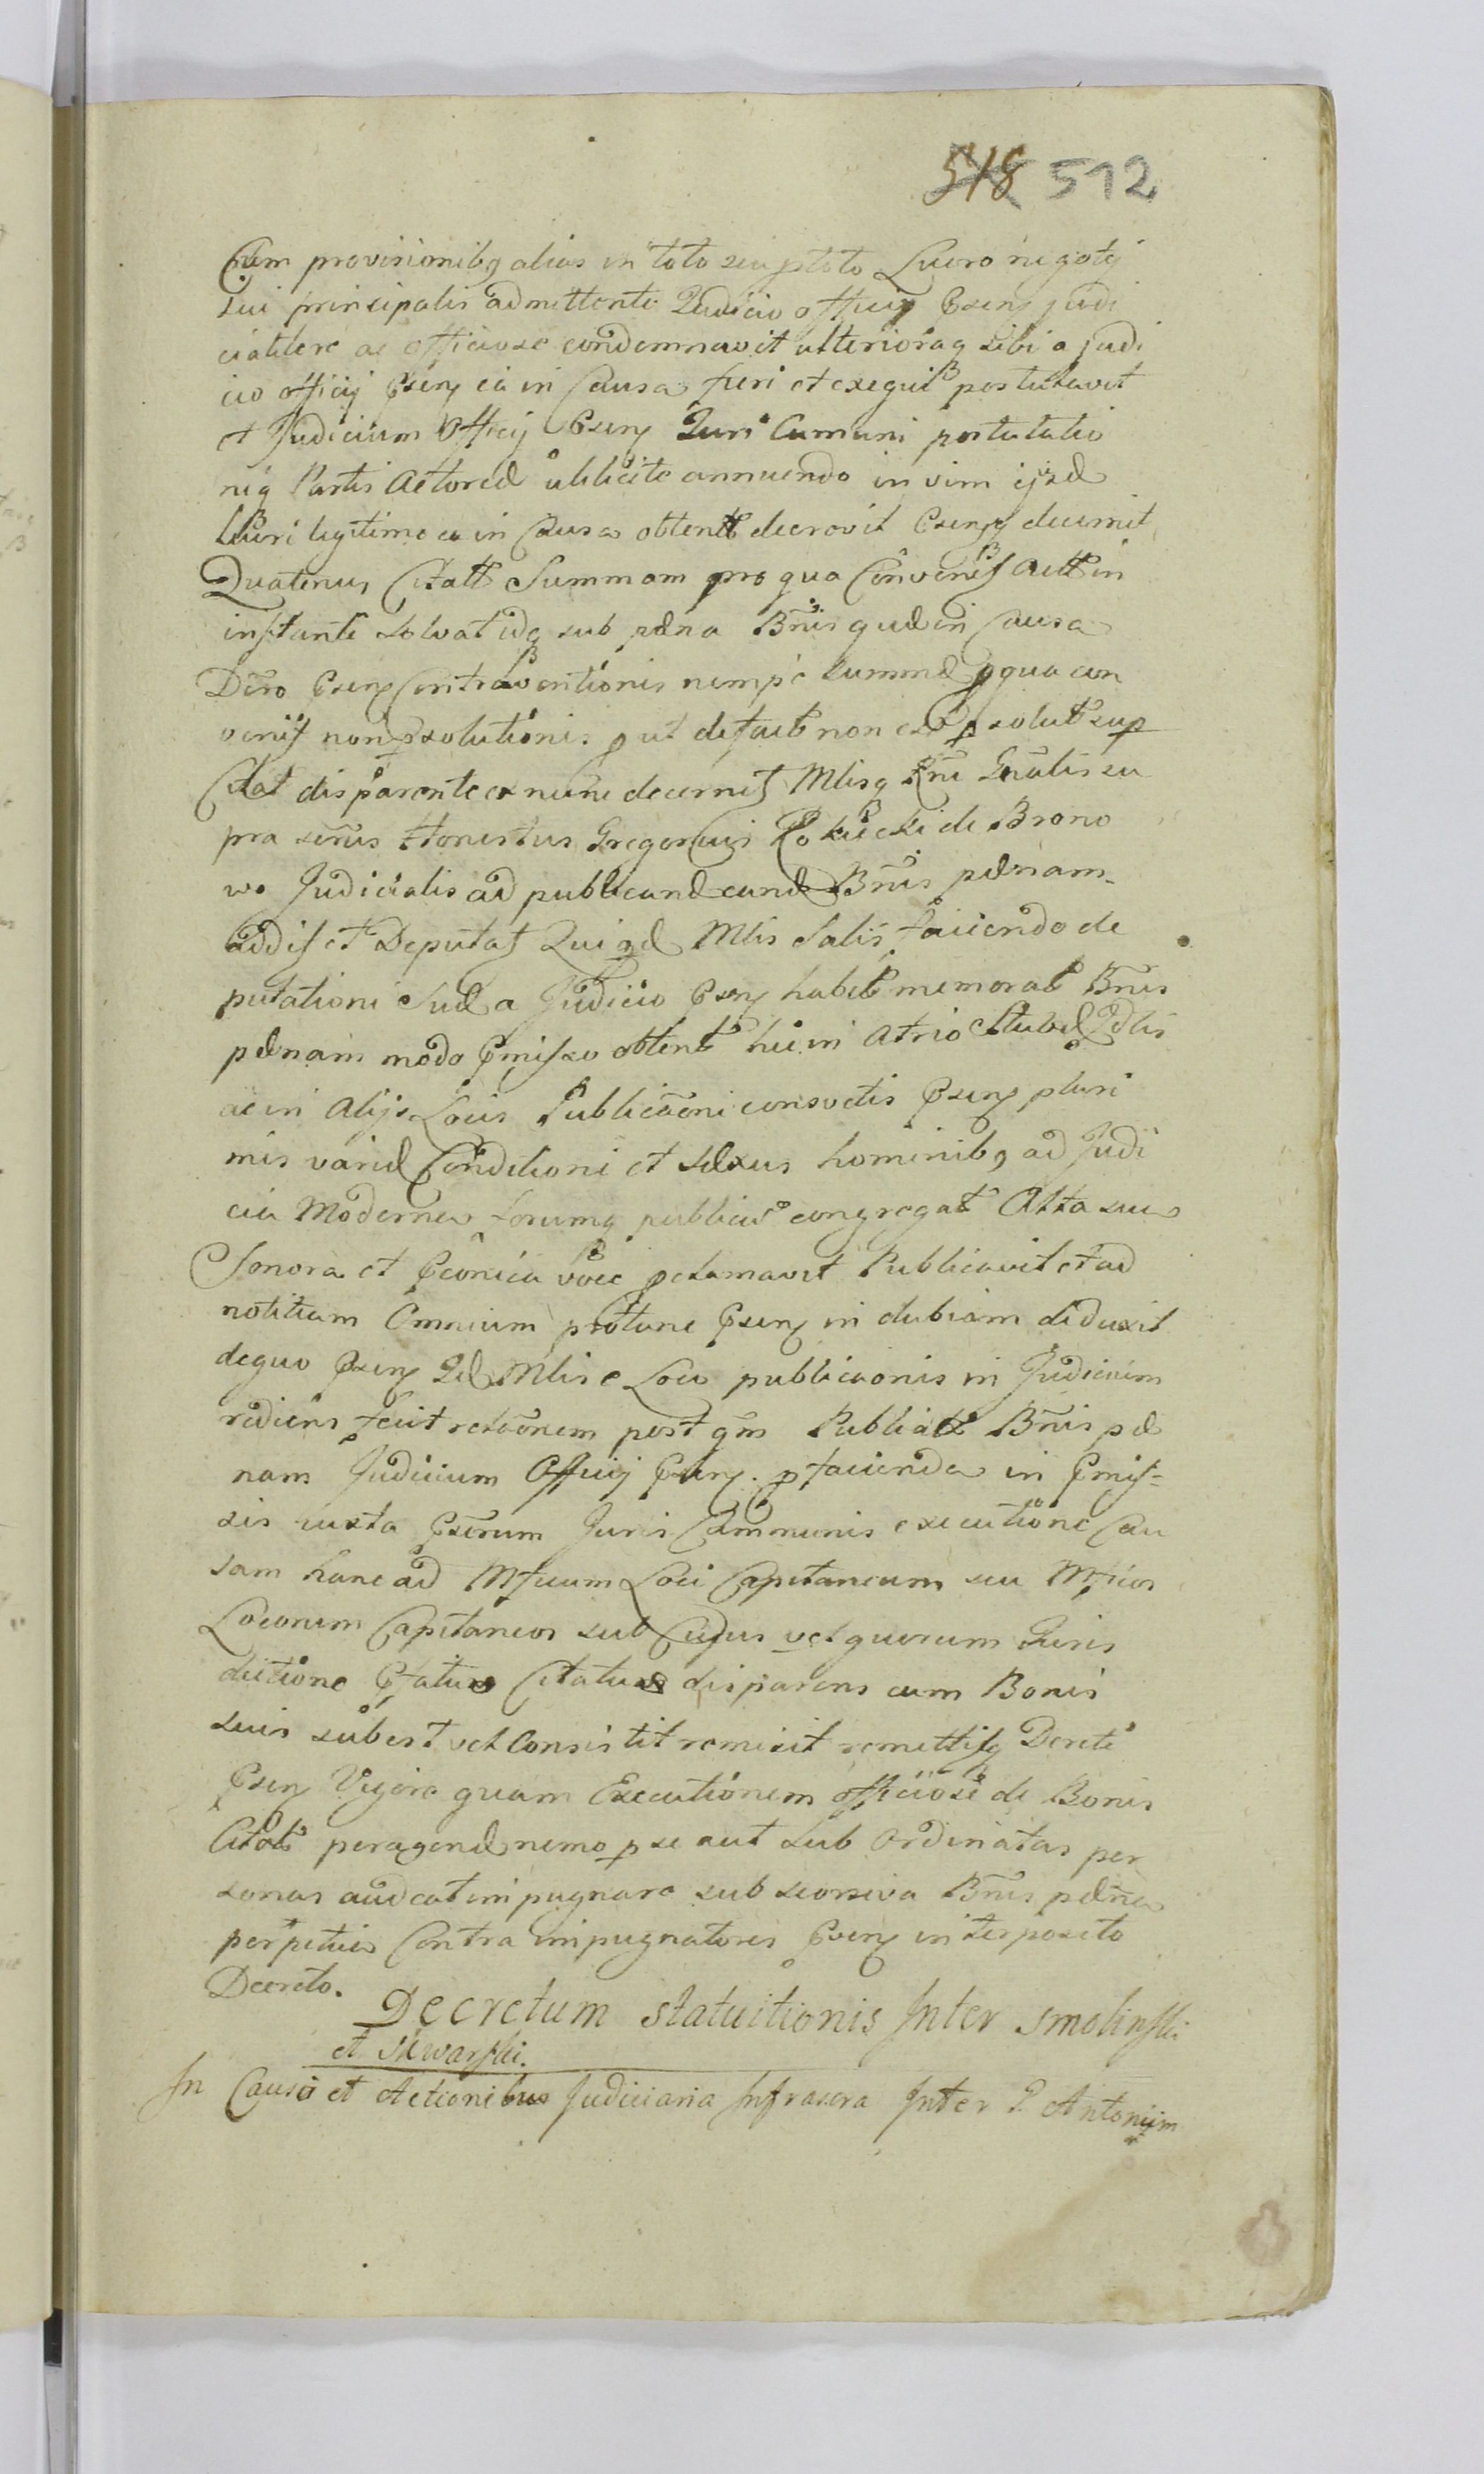 518 512
Cum provisionibq alias in toto seu ptoto Lucro negotij
sui principalis admittente Judicio officij Psenz judi
cialiter ac officiose condemnavit ulterioraq sibi a judi
cio officij Psenz ea in Causa fieri et exequi postulavit
et Judicium Officij Psenz Juri Comuni postulatio
niq Partis Actoreæ ulilicite annuendo in vim ejsd
lucri legitime ea in Causa obtent decrevit Psenzq decernit
Quatenus Citatt Summam pro qua Convenit Actt in
instanti solvat idq sub pæna Bnis quæ in Causa
Dcro Psenz Contraventionis nempe summæ p qua con
venit non psolutionis put de facto non est psolut sup
Citat disparente ex nunc decernit Mlisq Rni Gnalis su
pra scrius Honestus Gregorius Rokicki de Brono
wo Judicialis ad publicand eand Bnis pænam
addit et Deputat Qui qd Mlis Satis faciendo de
putationi suæ a Judicio Psenz habit memorat Bnis
pænam modo Pmisso obtent hic in Atrio Stubæ Jdlis
ac in Alijs Locis Publicaoni consvetis Psenz pluri
mis variæ Conditioni et sexus hominibq ad Judi
cia Moderna forumq publicu congregat Alta sua
Sonora et Pconica voce pclamavit Publicavit et ad
notitiam Omnium protunc Psenz in dubiam deduxit
de quo Psenz Id Mlis e Loco publicaonis in Judicium
rediens fecit relaonem post qm Publicat Bnis pæ
nam Judicium Officij Psenz. p facienda in Pmis=
sis iuxta Pscrum Juris Communis executione Cau
sam hanc ad Mficum Loci Capitaneum seu Mficos
Locorum Capitaneos sub Cujus vel quorum Juris
dictione Pfatus Citatus disparens cum Bonis
suis subest vel Consistit remisit remittitq Dcreti
Psenz Vigore quam Executionem officiose de Bonis
Citati peragend nemo p se aut sub Ordinatas per
sonas audeat impugnare sub seorsiva Bnis pæna
perpetua Contra impugnatores Psenz interposito
Decreto.
Decretum statuitionis Inter Smolinski
et Skwarski.
In Causa et Actionibus Judiciaria Infrascra Inter P. Antonium